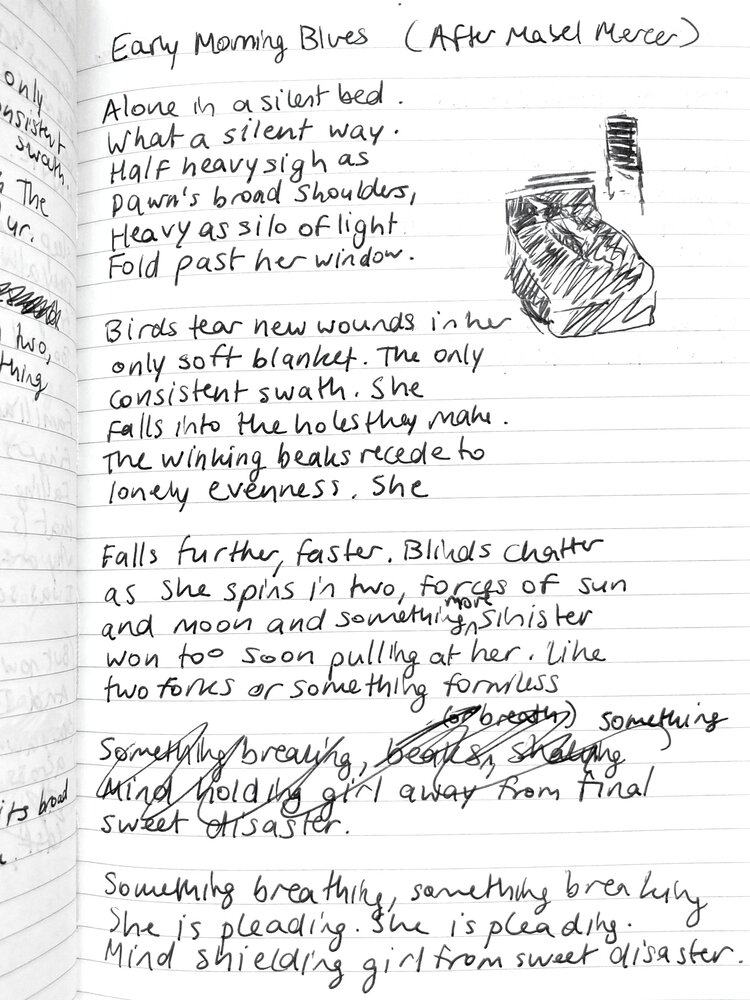 only
consistent
swath.
The
ur.
two,
thing
its broad
Early Morning Blues (After Mabel Mercer)
Alone in a silent bed.
What a silent way.
Half heavy sigh as
Dawn's broad shoulders,
Heavy as silo of light
Fold past her window.
Birds tear new wounds in her
only soft blanket. The only
consistent swath. She
Falls into the holes they make.
The winking beaks recede to
lonely evenness. She
Falls further, faster. Blinds chatter
as she spins in two, forces of sun
and moon and something more sinister
won too soon pulling at her. Like
two forks or something formless
(or breath) something
Something breaking, beaks, shaking
Mind holding girl away from final
sweet disaster.
Something breathing, something breaking
She is pleading. She is pleading.
Mind shielding girl from sweet disaster.